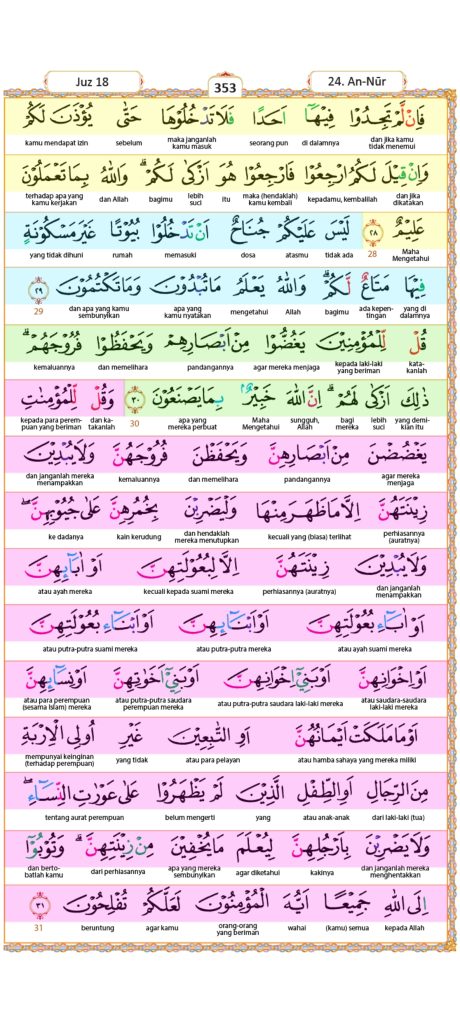 Juz 18
353
24. An-Nūr
فَاِنْ لَّمْ تَجِدُوْا فِيْهَآ اَحَدًا فَلَا تَدْخُلُوْهَا حَتّٰى يُؤْذَنَ لَكُمْ
dan jika kamu tidak menemui di dalamnya seorang pun maka janganlah kamu masuk sebelum kamu mendapat izin
وَاِنْ قِيْلَ لَكُمُ ارْجِعُوْا فَارْجِعُوْا هُوَ اَزْكٰى لَكُمْ ۗ وَاللّٰهُ بِمَا تَعْمَلُوْنَ
dan jika dikatakan kepadamu, kembalilah maka (hendaklah) kamu kembali itu lebih suci bagimu dan Allah terhadap apa yang kamu kerjakan
عَلِيْمٌ ٢٨ لَيْسَ عَلَيْكُمْ جُنَاحٌ اَنْ تَدْخُلُوْا بُيُوْتًا غَيْرَ مَسْكُوْنَةٍ
Maha Mengetahui 28 tidak ada atasmu dosa memasuki rumah yang tidak dihuni
فِيْهَا مَتَاعٌ لَّكُمْ ۗ وَاللّٰهُ يَعْلَمُ مَا تُبْدُوْنَ وَمَا تَكْتُمُوْنَ ٢٩
yang di dalamnya ada kepentingan bagimu Allah mengetahui apa yang kamu nyatakan dan apa yang kamu sembunyikan 29
قُلْ لِّلْمُؤْمِنِيْنَ يَغُضُّوْا مِنْ اَبْصَارِهِمْ وَيَحْفَظُوْا فُرُوْجَهُمْ ۗ
katakanlah kepada laki-laki yang beriman agar mereka menjaga pandangannya dan memelihara kemaluannya
ذٰلِكَ اَزْكٰى لَهُمْ ۗ اِنَّ اللّٰهَ خَبِيْرٌۢ بِمَا يَصْنَعُوْنَ ٣٠ وَقُلْ لِّلْمُؤْمِنٰتِ
yang demikian itu lebih suci bagi mereka sungguh, Allah Maha Mengetahui apa yang mereka perbuat 30 dan katakanlah kepada para perempuan yang beriman
يَغْضُضْنَ مِنْ اَبْصَارِهِنَّ وَيَحْفَظْنَ فُرُوْجَهُنَّ وَلَا يُبْدِيْنَ
agar mereka menjaga pandangannya dan memelihara kemaluannya dan janganlah mereka menampakkan
زِيْنَتَهُنَّ اِلَّا مَا ظَهَرَ مِنْهَا وَلْيَضْرِبْنَ بِخُمُرِهِنَّ عَلٰى جُيُوْبِهِنَّ ۖ
perhiasannya (auratnya) kecuali yang (biasa) terlihat dan hendaklah mereka menutupkan kain kerudung ke dadanya
وَلَا يُبْدِيْنَ زِيْنَتَهُنَّ اِلَّا لِبُعُوْلَتِهِنَّ اَوْ اٰبَاۤىِٕهِنَّ
dan janganlah menampakkan perhiasannya (auratnya) kecuali kepada suami mereka atau ayah mereka
اَوْ اٰبَاۤءِ بُعُوْلَتِهِنَّ اَوْ اَبْنَاۤىِٕهِنَّ اَوْ اَبْنَاۤءِ بُعُوْلَتِهِنَّ
atau ayah suami mereka atau putra-putra mereka atau putra-putra suami mereka
اَوْ اِخْوَانِهِنَّ اَوْ بَنِيْٓ اِخْوَانِهِنَّ اَوْ بَنِيْٓ اَخَوٰتِهِنَّ اَوْ نِسَاۤىِٕهِنَّ
atau saudara-saudara laki-laki mereka atau putra-putra saudara laki-laki mereka atau putra-putra saudara perempuan mereka atau para perempuan (sesama Islam) mereka
اَوْ مَا مَلَكَتْ اَيْمَانُهُنَّ اَوِ التّٰبِعِيْنَ غَيْرِ اُولِى الْاِرْبَةِ
atau hamba sahaya yang mereka miliki atau para pelayan yang tidak mempunyai keinginan (terhadap perempuan)
مِنَ الرِّجَالِ اَوِ الطِّفْلِ الَّذِيْنَ لَمْ يَظْهَرُوْا عَلٰى عَوْرٰتِ النِّسَاۤءِ ۖ
dari laki-laki (tua) atau anak-anak yang belum mengerti tentang aurat perempuan
وَلَا يَضْرِبْنَ بِاَرْجُلِهِنَّ لِيُعْلَمَ مَا يُخْفِيْنَ مِنْ زِيْنَتِهِنَّ ۗ وَتُوْبُوْٓا
dan janganlah mereka menghentakkan kakinya agar diketahui apa yang mereka sembunyikan dari perhiasannya dan bertobatlah kamu
اِلَى اللّٰهِ جَمِيْعًا اَيُّهَ الْمُؤْمِنُوْنَ لَعَلَّكُمْ تُفْلِحُوْنَ ٣١
kepada Allah (kamu) semua wahai orang-orang yang beriman agar kamu beruntung 31